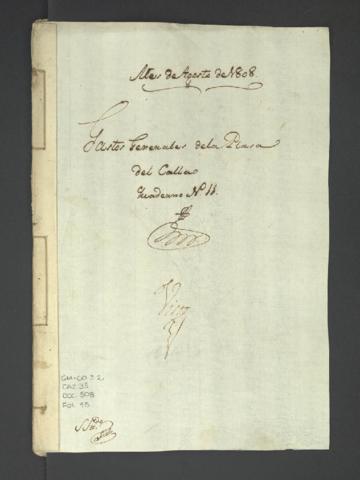 Mes de Agosto de 1808.
Gastos Generales de la Plasa
del Callao
Quaderno N.º 11.
GM-CO 2.2
CAJ. 35
DOC. 508
FOL. 45